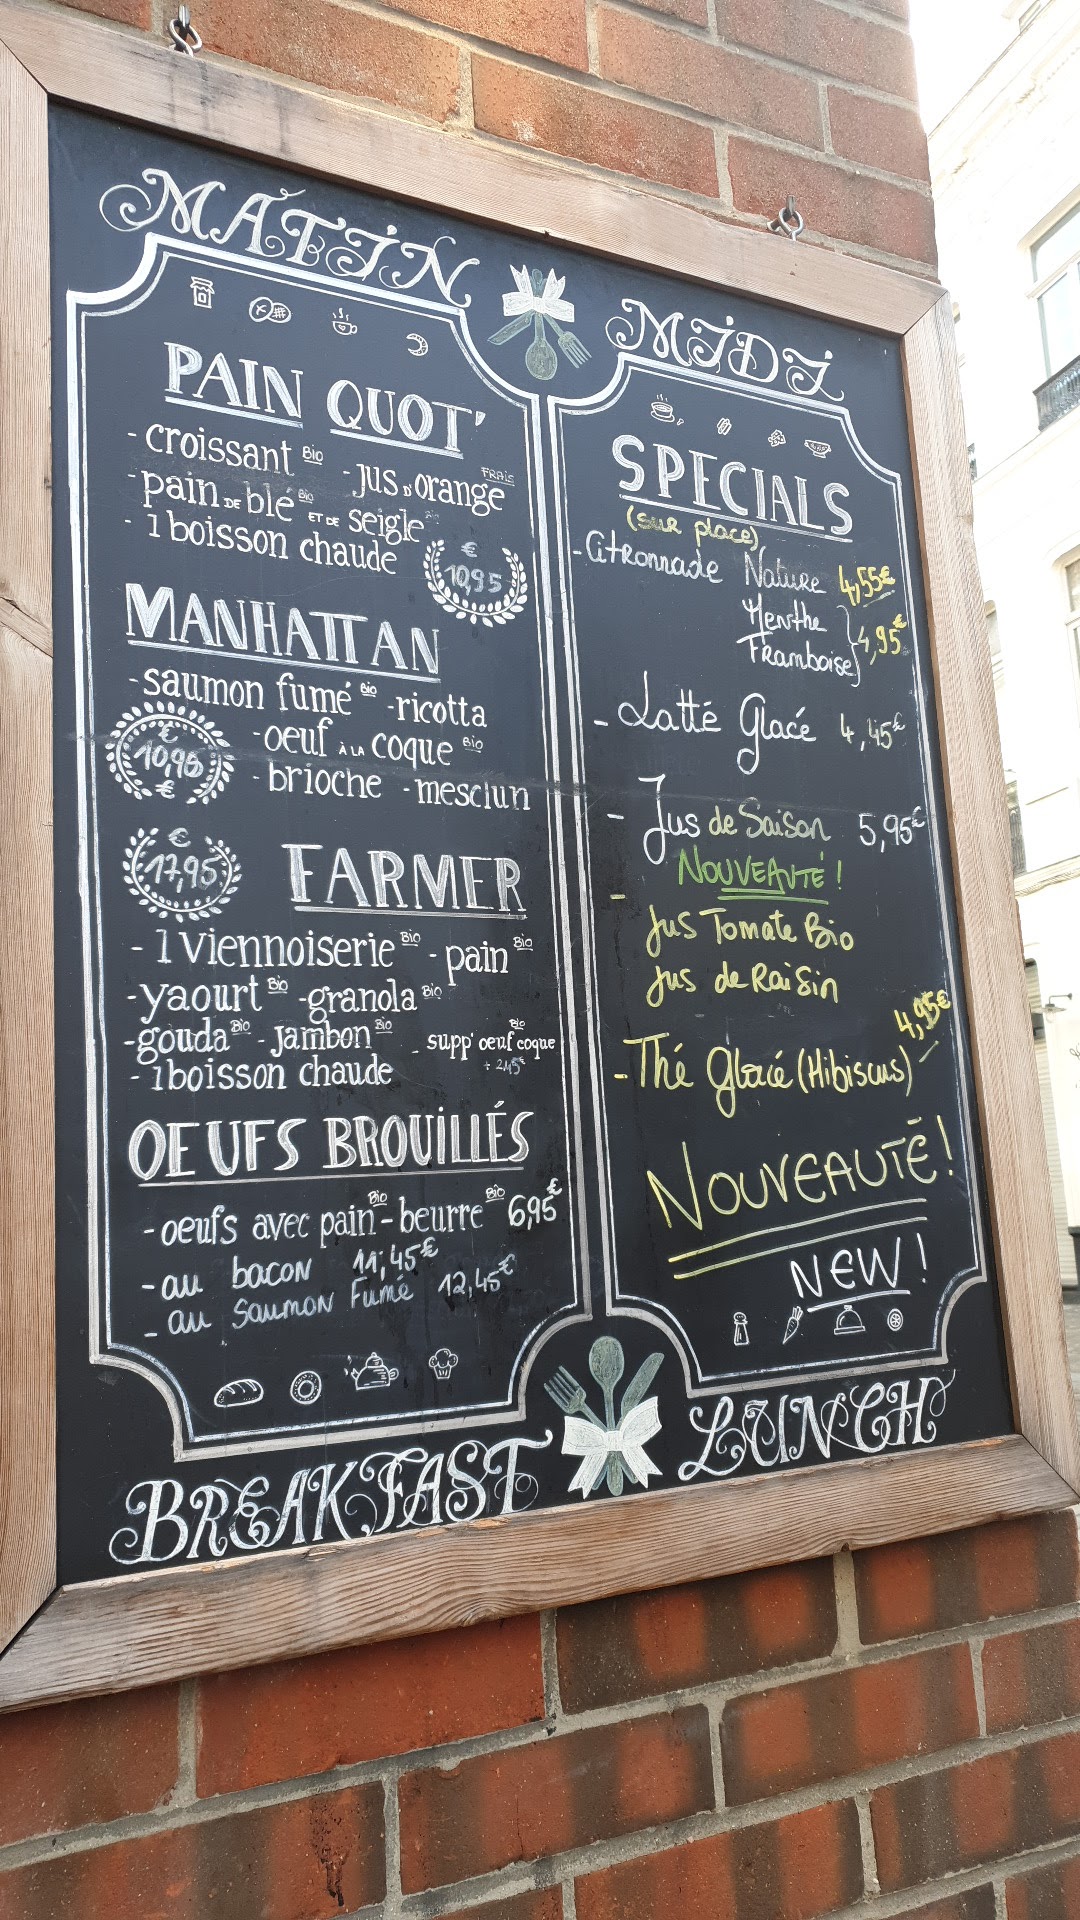 MATIN
PAIN QUOT'
- croissant Bio - jus d'orange FRAIS
- pain DE blé Bio ET DE seigle Bio
- 1 boisson chaude
€
10,95
MANHATTAN
- saumon fumé Bio - ricotta
- oeuf À LA coque Bio
- brioche - mesclun
€
10,95
€
€
17,95
FARMER
- 1 Viennoiserie Bio - pain Bio
- yaourt Bio - granola Bio
- gouda Bio - Jambon Bio - supp' oeuf coque Bio
+ 2,45€
- 1 boisson chaude
OEUFS BROUILLÉS
- oeufs avec pain Bio - beurre Bio 6,95€
- au bacon 11,45€
- au saumon Fumé 12,45€
BREAKFAST
MIDI
SPECIALS
(sur place)
- Citronnade Nature 4,55€
Menthe
Framboise } 4,95€
- Latté Glacé 4,45€
- Jus de Saison 5,95€
NOUVEAUTÉ !
- Jus Tomate Bio
Jus de Raisin
4,95€
- Thé Glacé (Hibiscus)
NOUVEAUTÉ !
NEW !
LUNCH